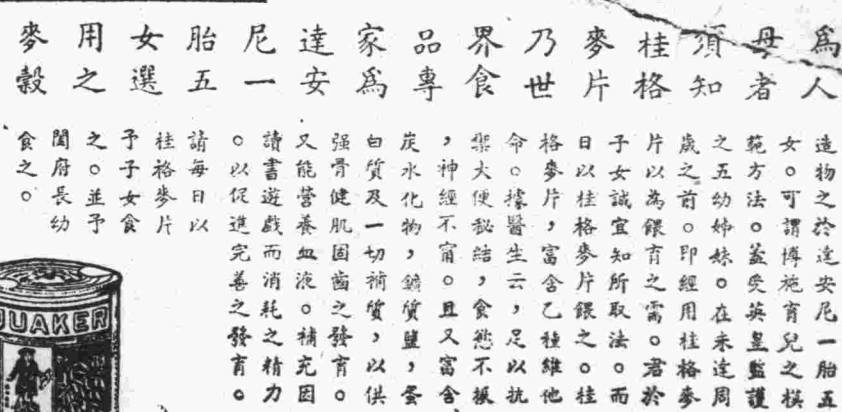 為人
母者
須知
桂格
麥片
乃世
界食
品專
家為
達安
尼一
胎五
女選
用之
麥穀
造物之於達安尼一胎五
女。可謂博施育兒之模
範方法。蓋受英皇監護
之五幼姊妹。在未達周
歲之前。即經用桂格麥
片以為餵育之需。君於
子女誠宜知所取法。而
日以桂格麥片餵之。桂
格麥片，富含乙種維他
命。據醫生云，足以抗
禦大便秘結，食慾不振
，神經不甯。且又富含
炭水化物，鑛質鹽，蛋
白質及一切補質，以供
强骨健肌固齒之發育。
又能營養血液。補充因
讀書遊戲而消耗之精力
。以促進完善之發育。
請每日以
桂格麥片
予子女食
之。並予
閤府長幼
食之。
QUAKER